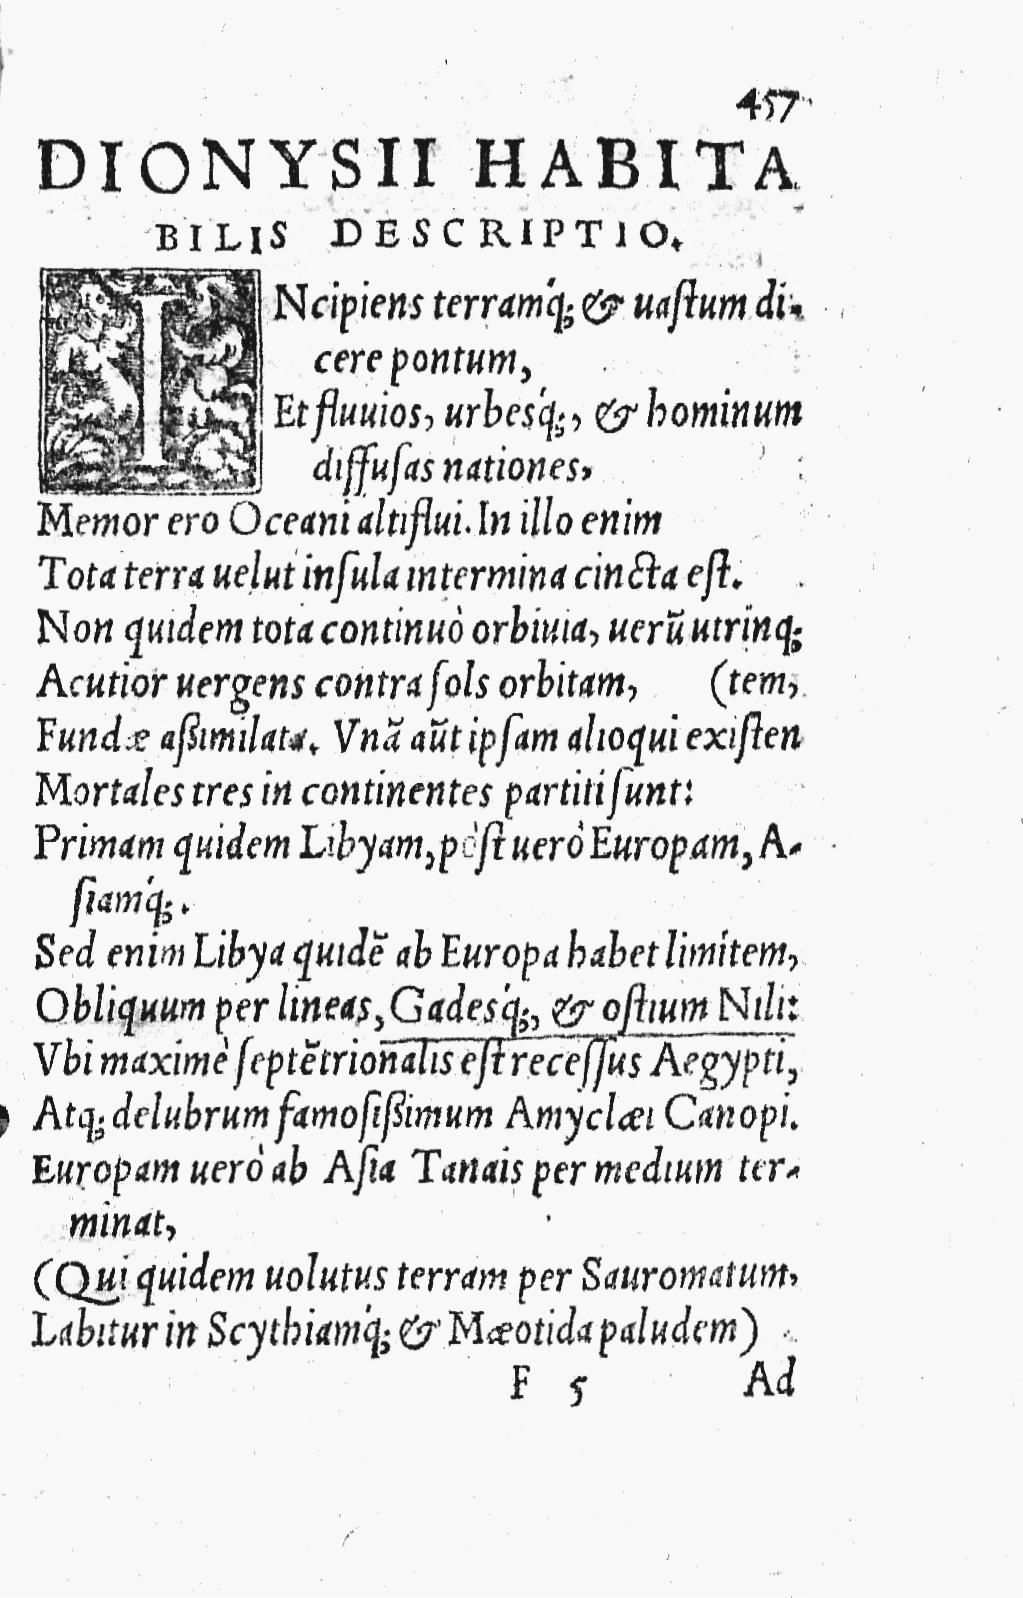 457
DIONYSII HABITA
BILIS DESCRIPTIO.
INcipiens terramq́; & uaſtum di-
cere pontum,
Et fluuios, urbesq́;, & hominum
diffuſas nationes,
Memor ero Oceani altiflui. In illo enim
Tota terra uelut inſula intermina cincta eſt.
Non quidem tota continuò orbiuia, uerũ utrinq;
Acutior uergens contra ſols orbitam, (tem,
Fundæ aßimilata. Vnã aũt ipſam alioqui exiſten
Mortales tres in continentes partiti ſunt:
Primam quidem Libyam, pòſt uerò Europam, A-
ſiamq́;.
Sed enim Libya quidẽ ab Europa habet limitem,
Obliquum per lineas, Gadesq́;, & oſtium Nili:
Vbi maximè ſeptẽtrionalis eſt receſſus Aegypti,
Atq; delubrum famoſißimum Amyclæi Canopi.
Europam uerò ab Aſia Tanais per medium ter-
minat,
(Qui quidem uolutus terram per Sauromatum,
Labitur in Scythiamq́; & Mæotida paludem)
F 5 Ad